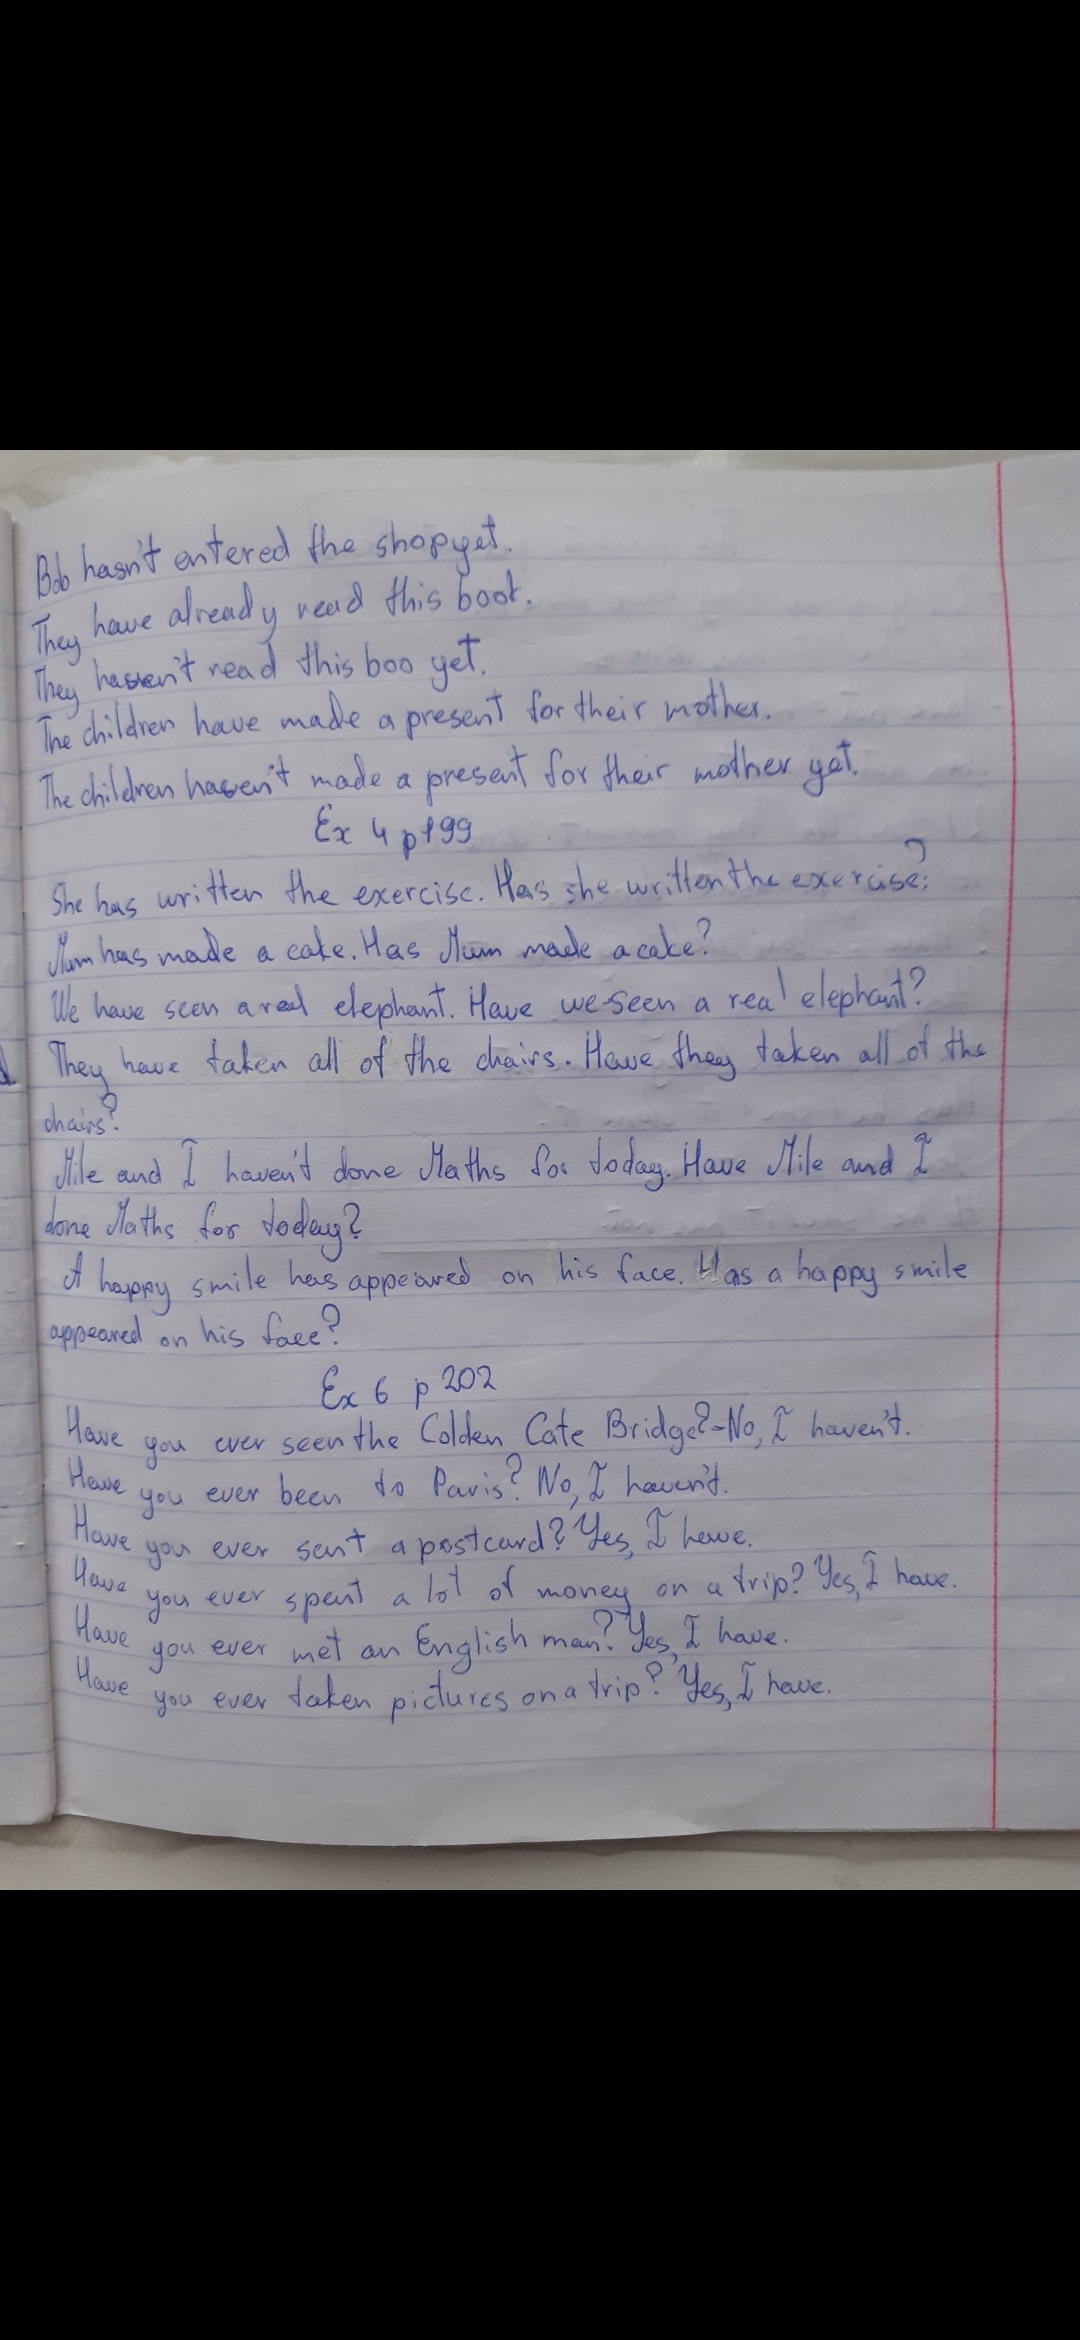 Bob hasn't entered the shop yet.
They have already read this boot.
They haven't read this boo yet.
The children have made a present for their mother.
The children haven't made a present for their mother yet.
Ex 4 p199
She has written the exercise. Has she written the exercise?
Mum has made a cake. Has Mum made a cake?
We have seen a real elephant. Have we seen a real elephant?
They have taken all of the chairs. Have they taken all of the
chairs?
Mile and I haven't done Maths for today. Have Mile and I
done Maths for today?
A happy smile has appeared on his face. Has a happy smile
appeared on his face?
Ex 6 p 202
Have you ever seen the Colden Cate Bridge?-No, I haven't.
Have you ever been to Paris? No, I haven't.
Have you ever sent a postcard? Yes, I have.
Have you ever spent a lot of money on a trip? Yes, I have.
Have you ever met an English man? Yes, I have.
Have you ever taken pictures on a trip? Yes, I have.